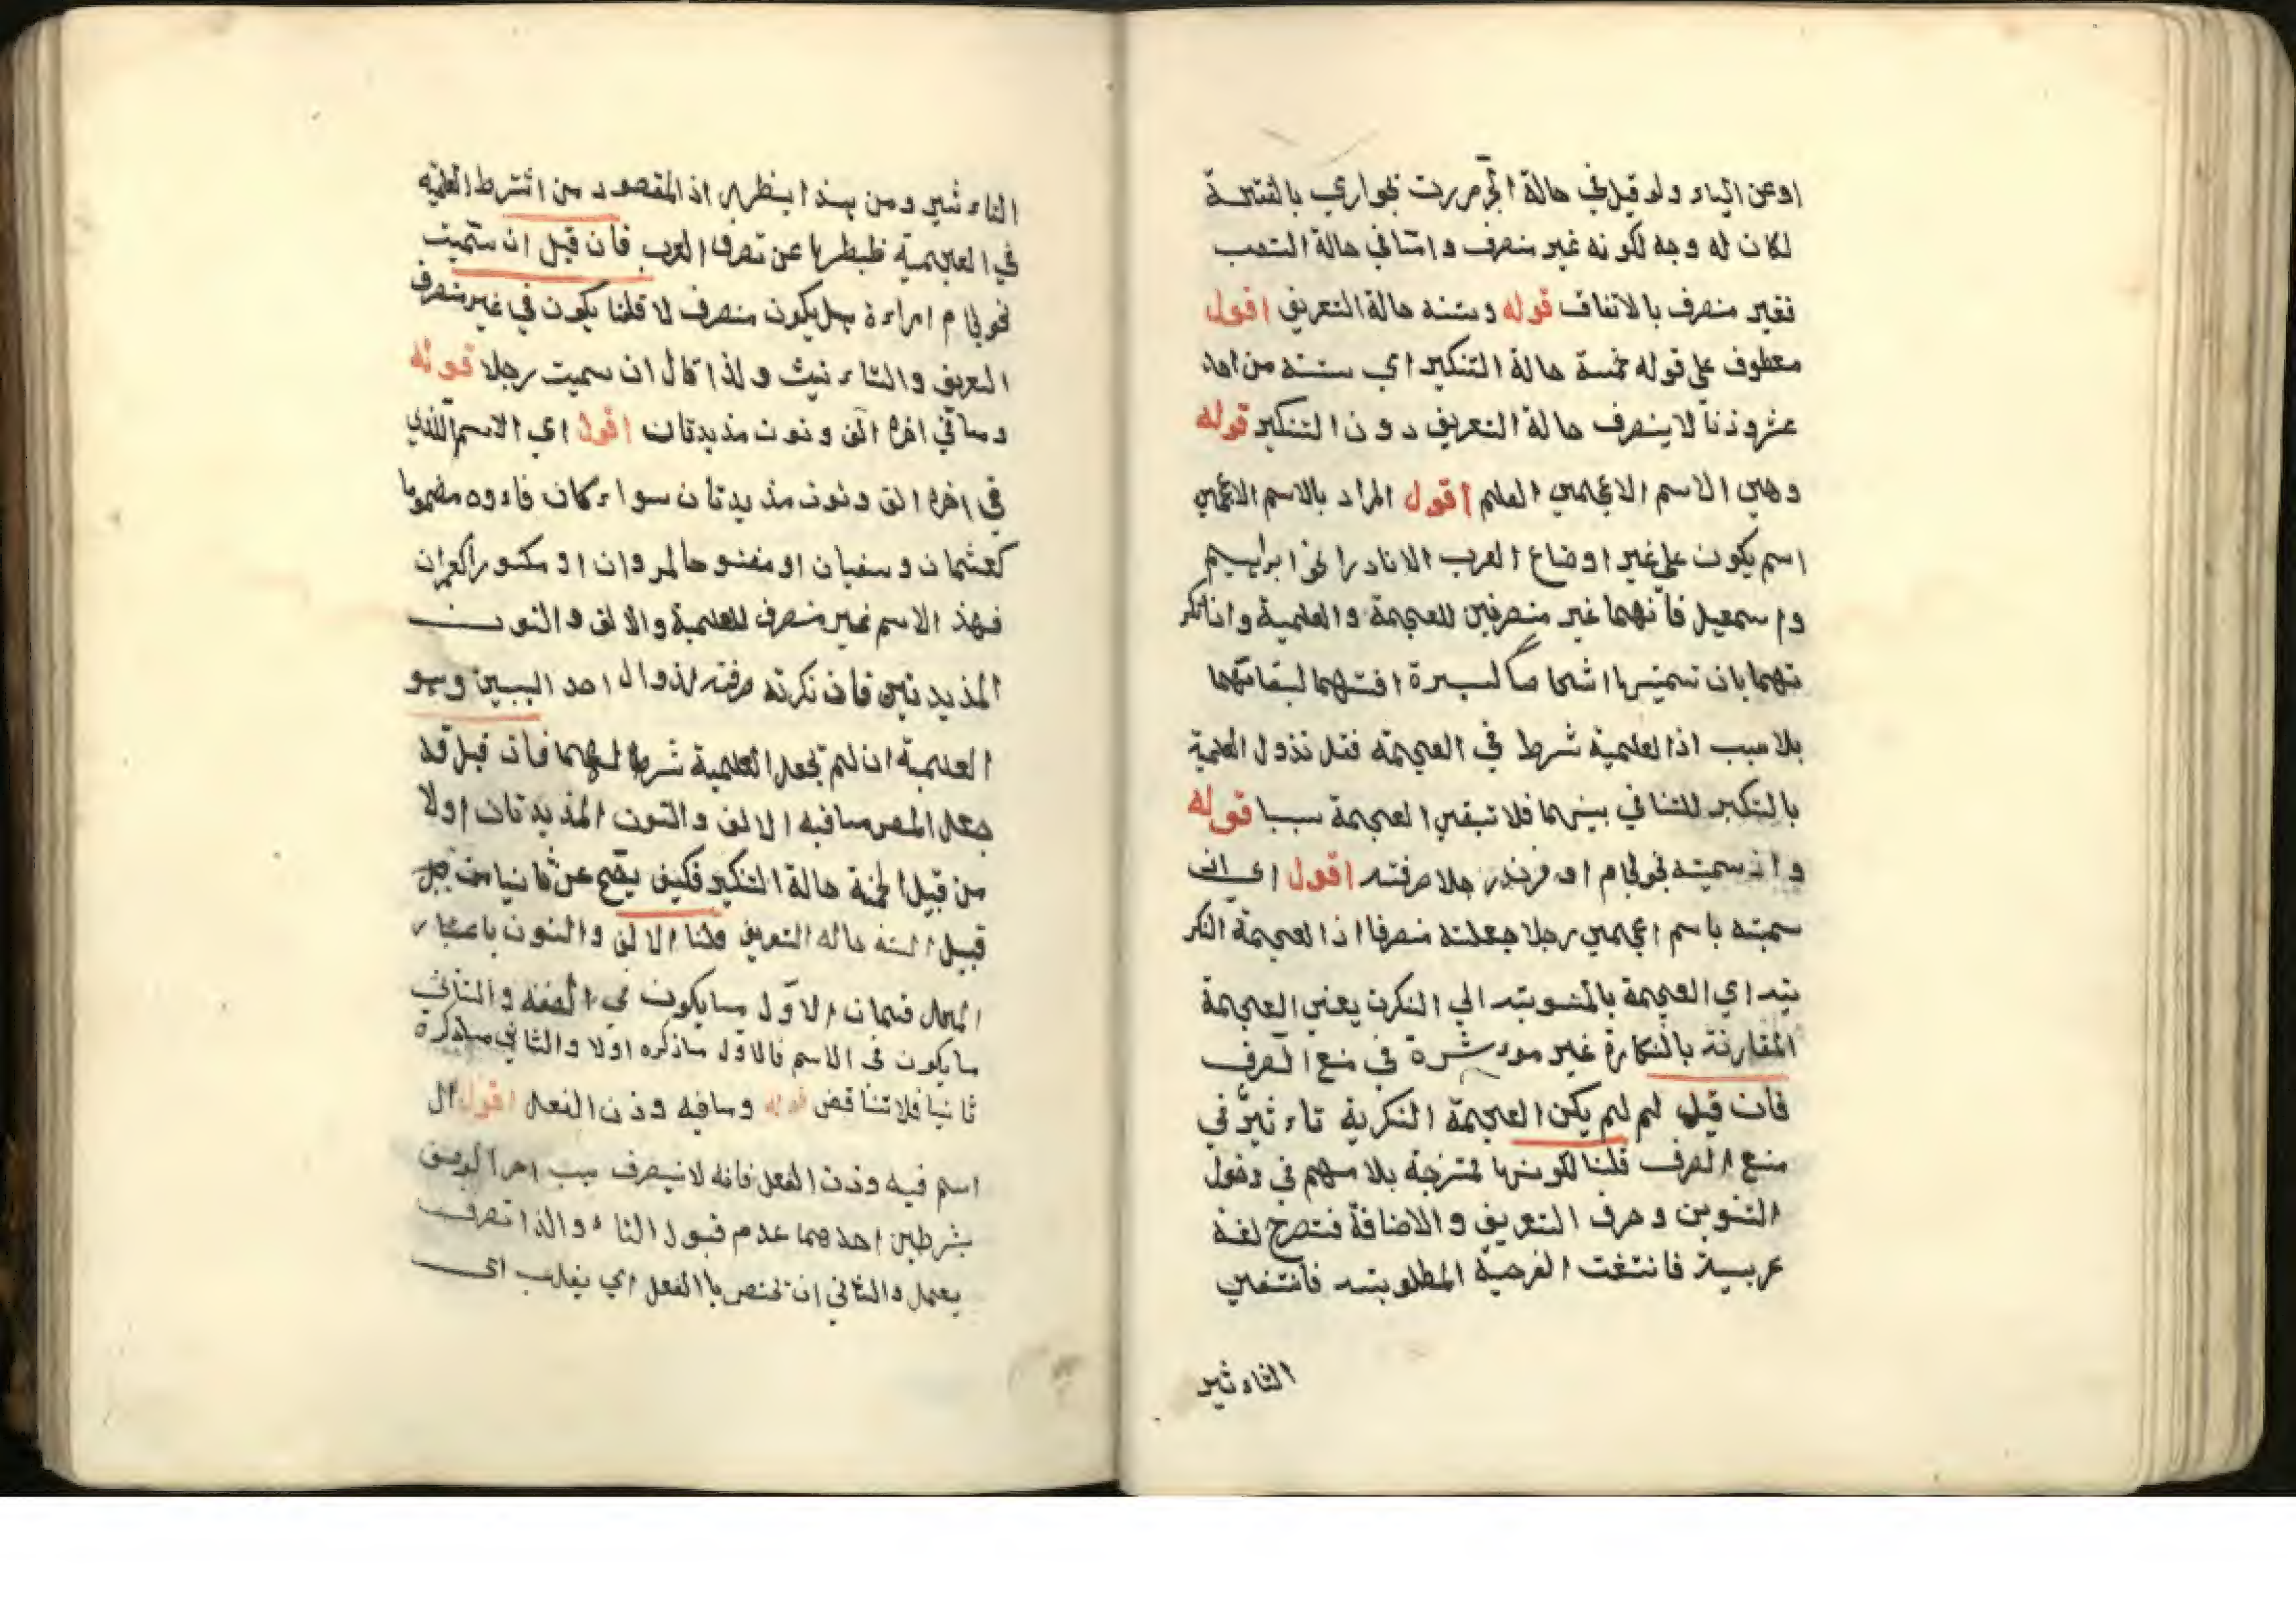 او عن الياء ولو قيل في حالة الجر مررت بجواري بالفتحة
لكان له وجه لكونه غير منصرف واما في حالة النصب
فغير منصرف بالاتفاق قوله وستة حالة التعريف اقول
معطوف على قوله خمسة حالة التنكير اي ستة من احد
عشر وزنا لا ينصرف حالة التعريف دون التنكير قوله
وهي الاسم الاعجمي العلم اقول المراد بالاسم الاعجمي
اسم يكون على غير اوضاع العرب الا نادرا نحو ابراهيم
واسمعيل فانهما غير منصرفين للعجمة والعلمية وان نكر
تهما بان تسمية بها اشخاصا كسيرة افتهما لبقائهما
بلا سبب اذ العلمية شرط في العجمة فقد تزول العلمية
بالتنكير للتنافي بينهما فلا تبقي العجمة سببا قوله
وان سميته نحو لجام او فرند رجلا صرفته اقول اي ان
سميته باسم اعجمي رجلا جعلته منصرفا اذ العجمة النكر
ية اي العجمة بالمنسوبة الي النكرة يعني العجمة
المقارنة بالنكارة غير موءثرة في منع الصرف
فان قيل لم لم يكن العجمة النكرية تاءثير في
منع الصرف قلنا لكونها ممتزجة بلامهم في دخول
التنوين وحرف التعريف والاضافة فتصرح لغة
عربية فانتفت الفرعية المطلوبة فانتفي
التاءثير
التاءثير ومن هذا يظهر ان المقصود من اشترط العلمية
في العجمية ظبطها عن تصرف العرب فان قيل ان سميت
نحو لجام امراءة هل يكون منصرف لا قلنا يكون في غير منصرف
التعريف والتاءنيث ولذا قال ان سميت رجلا قوله
وما في اخره الف ونون مذيدتان اقول اي الاسم الذي
في اخره الف ونون مذيدتان سواء كان فاءوه مضموما
كعثمان وسفيان او مفتوحا لمروان او مكسورا كعمران
فهذ الاسم غير منصرف للعلمية والالف والنون
المذيدتين فان نكرته صرفته لذوال احد السببين وهو
العلمية ان لم تجعل العلمية شرطا لهما فان قيل قد
جعل المصر ما فيه الالف والنون المذيدتان اولا
من قبيل الخمسة حالة التنكير فكيف يصح عن ثانيا من
قبيل الستة حاله التعريف قلنا الالف والنون باعتبار
المحل قسمان الاول ما يكون في الصفة والثاني
ما يكون في الاسم فالاول ما ذكره اولا والثاني ما ذكره
ثانيا فلا تناقض قوله وما فيه وزن الفعل اقول ال
اسم فيه وزن الفعل فانه لا ينصرف
بشرطين احدهما عدم قبول التاء والذا تصرف
يعمل والثاني ان تختص باالفعل اي يغلب اي